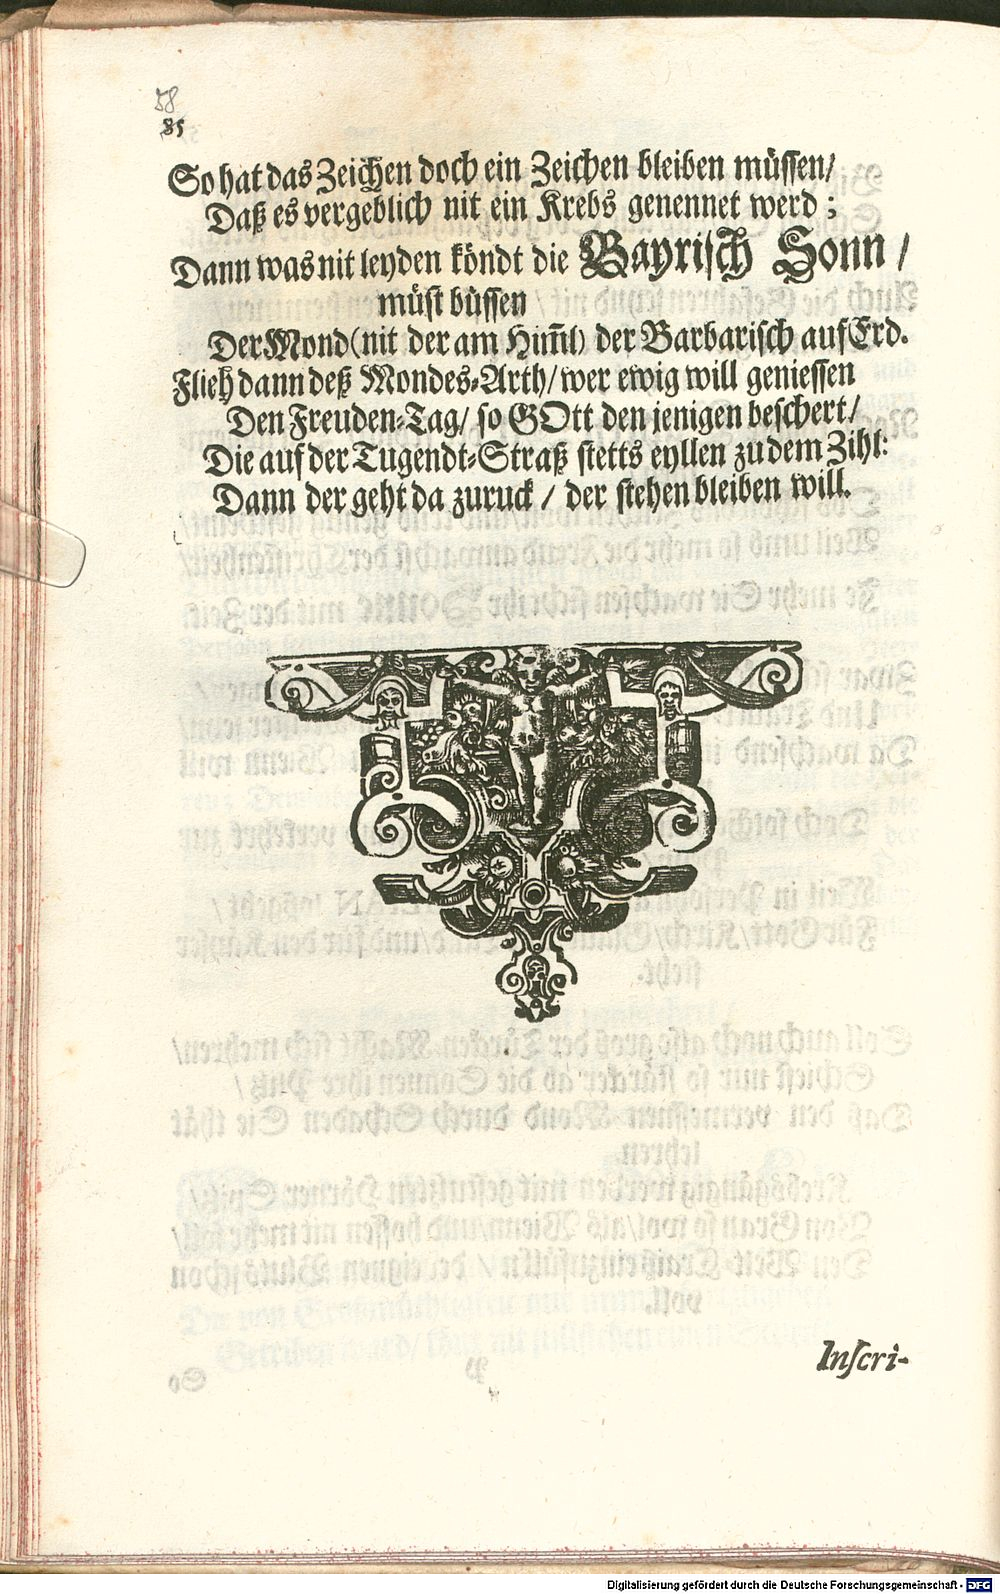 58
85
So hat das Zeichen doch ein Zeichen bleiben müssen/
Daß es vergeblich nit ein Krebs genennet werd;
Dann was nit leyden köndt die Bayrisch Sonn/
müst büssen
Der Mond (nit der am Him̃l) der Barbarisch auf Erd.
Flieh dann deß Mondes-Arth/ wer ewig will geniessen
Den Freuden-Tag/ so GOtt den jenigen beschert/
Die auf der Tugendt-Straß stetts eyllen zu dem Zihl:
Dann der geht da zuruck/ der stehen bleiben will.
Inscri-
Digitalisierung gefördert durch die Deutsche Forschungsgemeinschaft - DFG